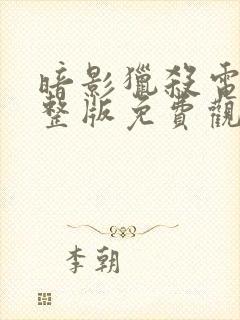 暗影獵殺電
整版免費觀
李朝